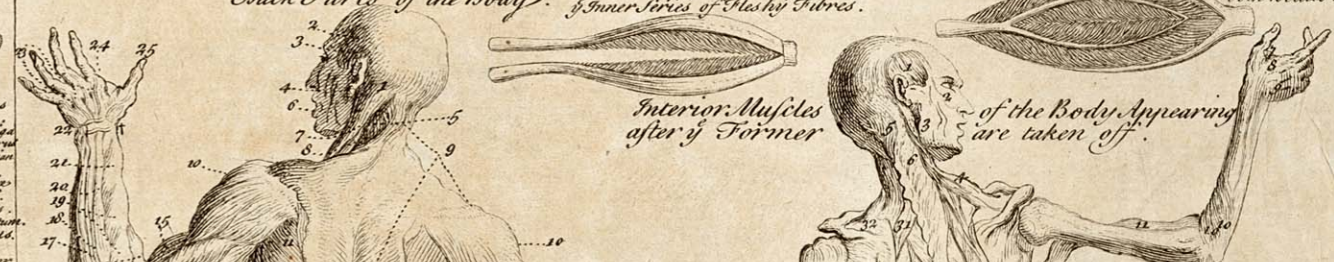 of the Body.
ẏ Inner Series of Fleshy Fibres.
Interior Muſcles
after ẏ Former
of the Body Appearing
are taken off.
23
24
25
22
21
20
19
18
17
2
3
4
6
7
8
1
5
9
10
15
11
10
2
3
5
6
4
32
31
11
10
8